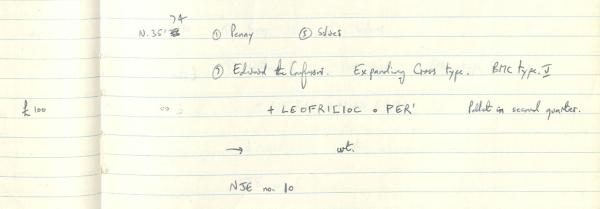 74
N. 35' ① Penny ⑤ Silver
⑦ Edward the Confessor. Expanding Cross type. BMC type. V
£100 + LEOFRICIOC o PER' Pellet in second quarter.
→ wt.
NJE no. 10